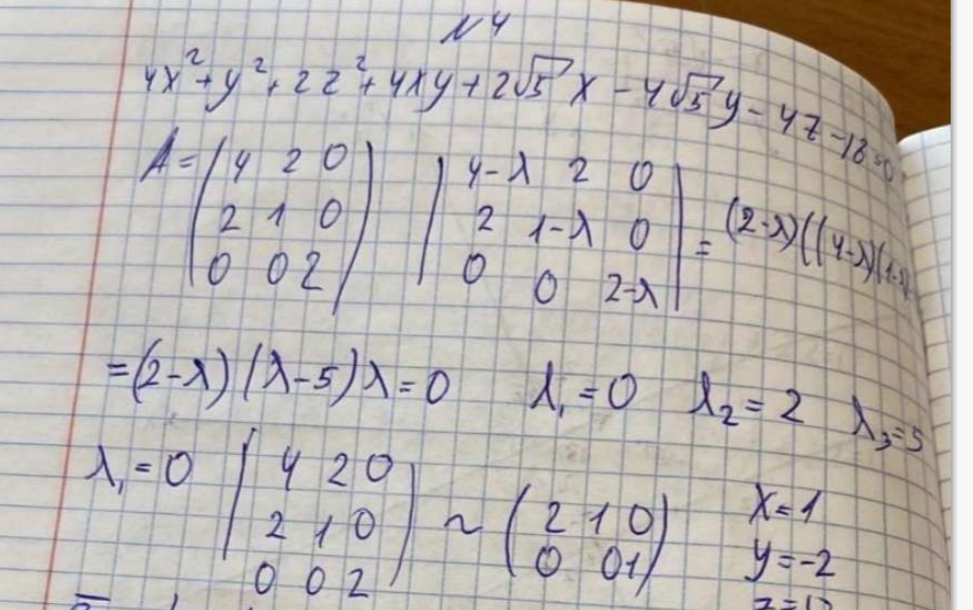 N4
4x²+y²+2z²+4xy+2√5x-4√5y-4z-18=0
A=(4 2 0
2 1 0
0 0 2) |4-λ 2 0
2 1-λ 0
0 0 2-λ| =(2-λ)((4-λ)(1-λ)
=(2-λ)(λ-5)λ=0 λ₁=0 λ₂=2 λ₃=5
λ₁=0 (4 2 0
2 1 0
0 0 2) ~ (2 1 0
0 0 1) x=1
y=-2